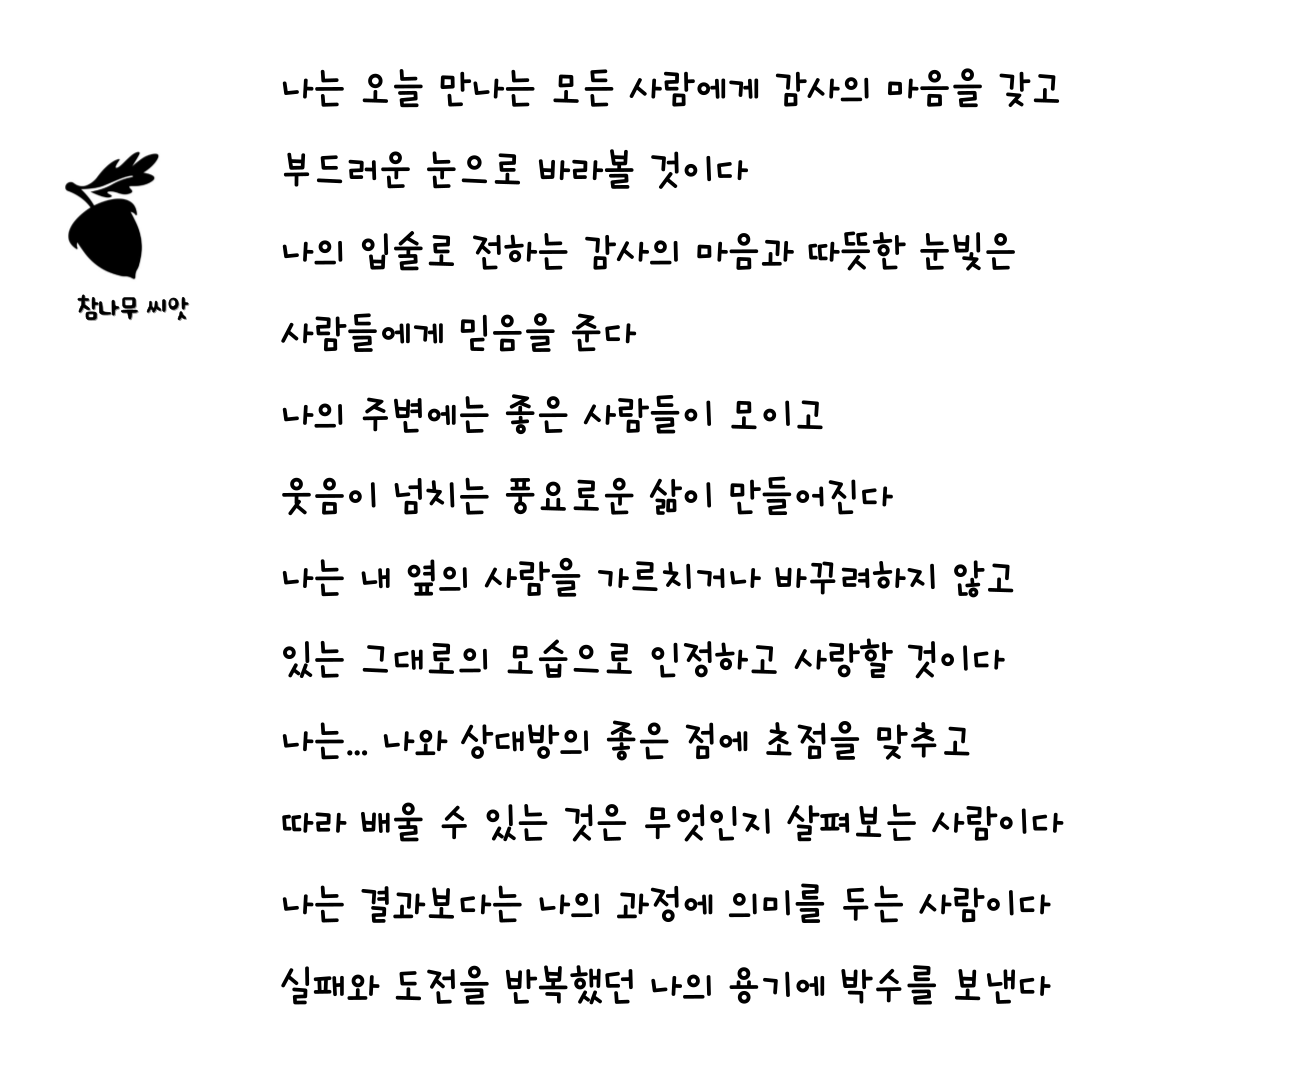 나는 오늘 만나는 모든 사람에게 감사의 마음을 갖고
부드러운 눈으로 바라볼 것이다
나의 입술로 전하는 감사의 마음과 따뜻한 눈빛은
사람들에게 믿음을 준다
나의 주변에는 좋은 사람들이 모이고
웃음이 넘치는 풍요로운 삶이 만들어진다
나는 내 옆의 사람을 가르치거나 바꾸려하지 않고
있는 그대로의 모습으로 인정하고 사랑할 것이다
나는... 나와 상대방의 좋은 점에 초점을 맞추고
따라 배울 수 있는 것은 무엇인지 살펴보는 사람이다
나는 결과보다는 나의 과정에 의미를 두는 사람이다
실패와 도전을 반복했던 나의 용기에 박수를 보낸다
참나무 씨앗